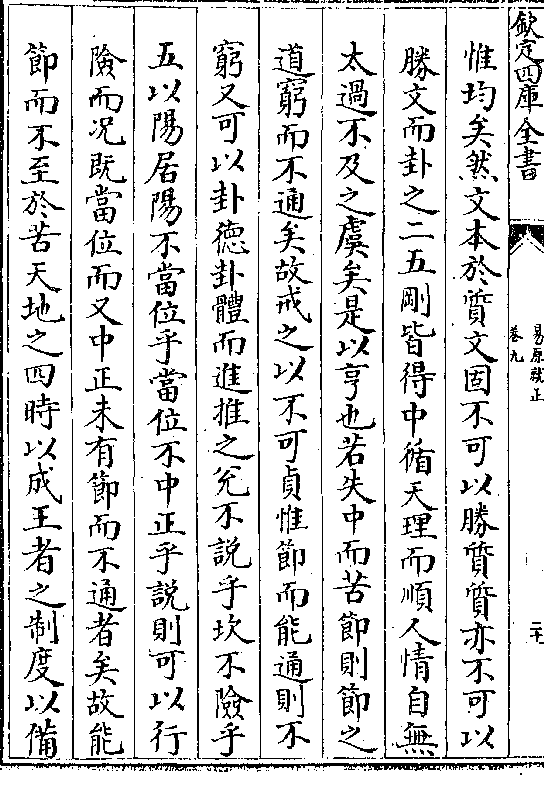 欽定四庫全書
易原就正
卷九
二十
惟均矣然文本於質文固不可以勝質質亦不可以
勝文而卦之二五剛皆得中循天理而順人情自無
太過不及之虞矣是以亨也若失中而苦節則節之
道窮而不通矣故戒之以不可貞惟節而能通則不
窮又可以卦德卦體而進推之兊不說乎坎不險乎
五以陽居陽不當位乎當位不中正乎說則可以行
險而况既當位而又中正未有節而不通者矣故能
節而不至於苦天地之四時以成王者之制度以備